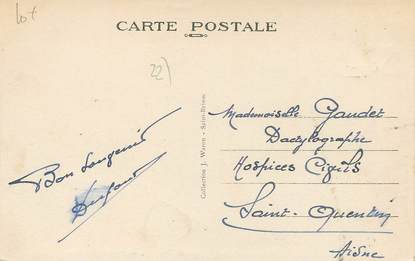 lot
CARTE POSTALE
22)
Mademoiselle Gaudet
Dactylographe
Hospices Civils
Saint-Quentin
Aisne
Bon Souvenir
Collection J. Warin - Saint-